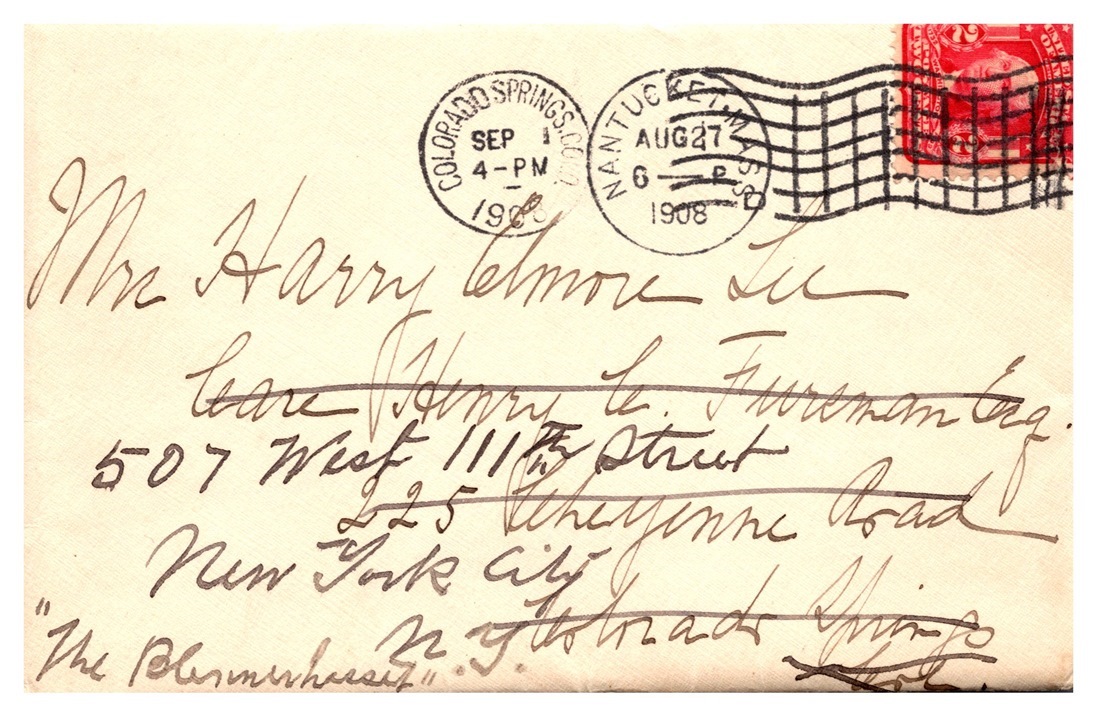 COLORADO SPRINGS, COLO.
SEP 1
4-PM
1908
NANTUCKET, MASS.
AUG 27
6 — P
1908
D
2
Mrs Harry Elmore Lee
Care Henry C. Fursman Esq.
507 West 111th Street
225 Cheyenne Road
New York City
Colorado Springs
N.Y.
"The Blennerhasset"
Colo.